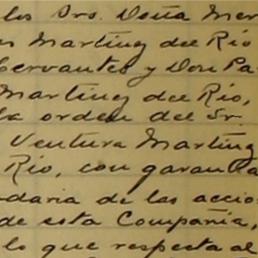 los Srs. Doña Mer
es Martínz del Río
Cervantes y Don Pa
Martínz del Río,
la orden del Sr.
Ventura Martínz
Río, con garantía
daria de las accio
de esta Compañía,
lo que respecta al